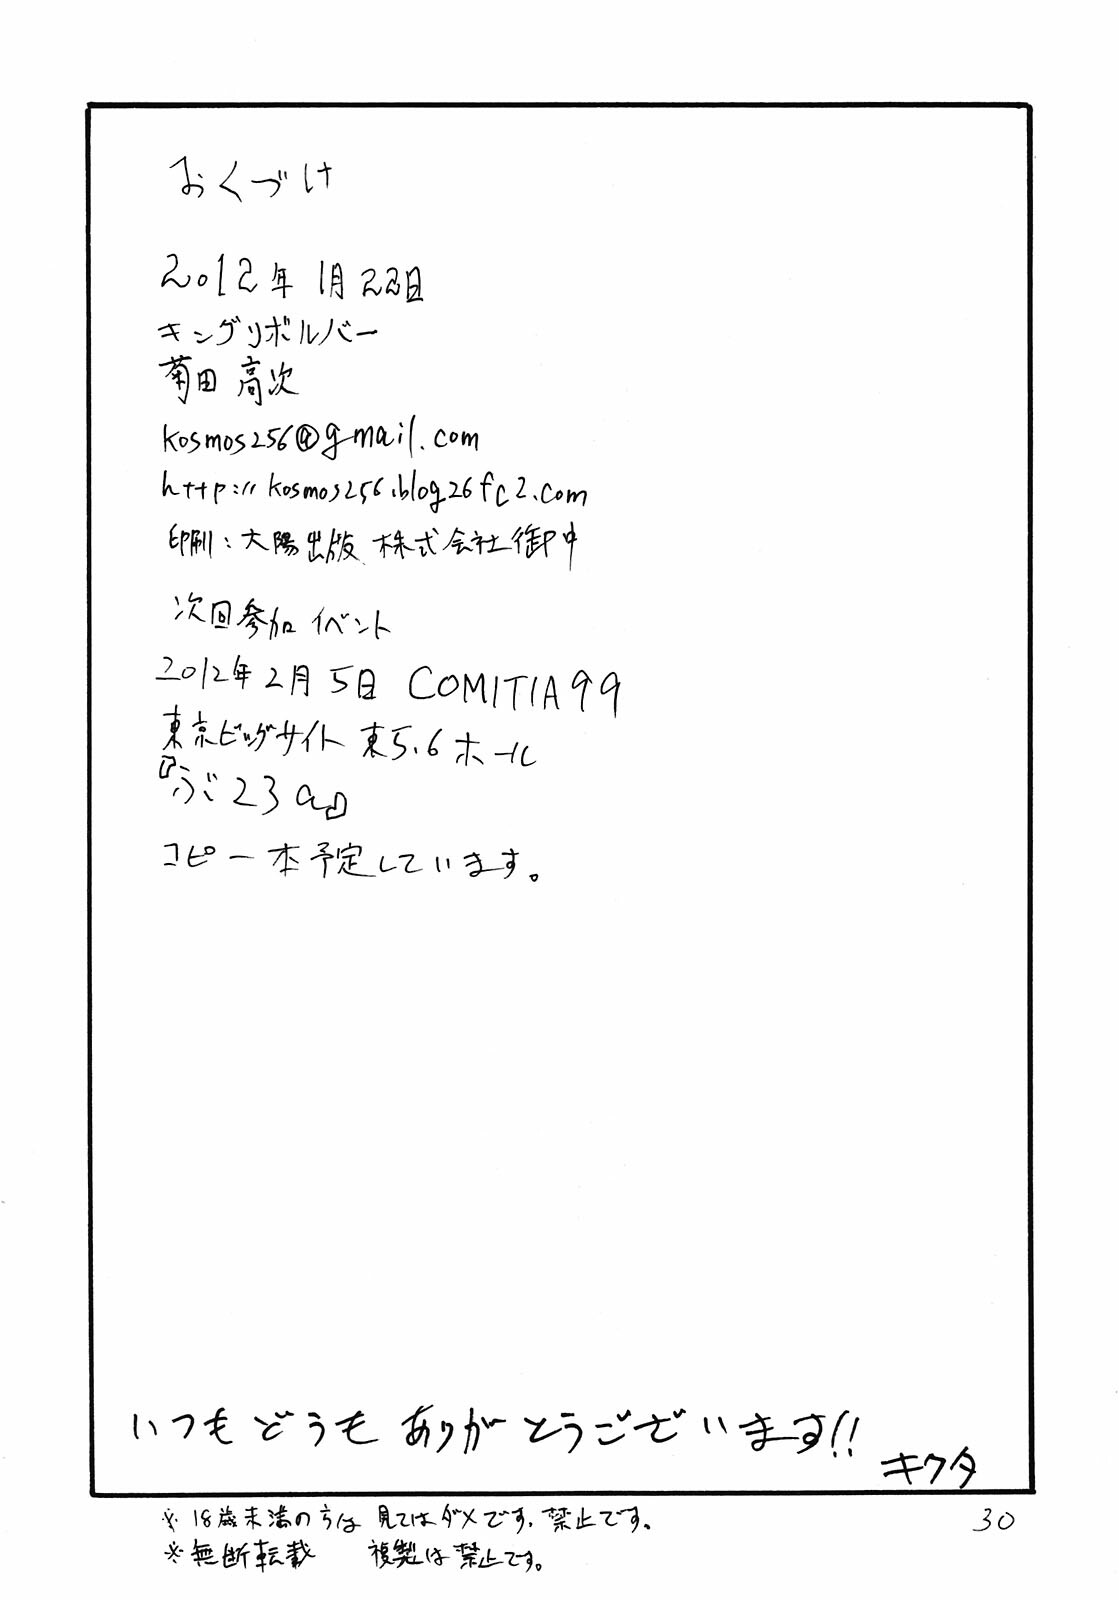 おくづけ
2012年 1月 22日
キングリボルバー
菊田 高次
kosmos256@gmail.com
http://kosmos256.blog26fc2.com
印刷：大陽出版 株式会社御中
次回参加 イベント
2012年 2月 5日 COMITIA99
東京ビッグサイト 東5.6 ホール
『う゛23a』
コピー本予定しています。
いつもどうも ありがとうございます!!
キクタ
※18歳未満の方は 見てはダメです、禁止です。
30
※無断転載 複製は禁止です。